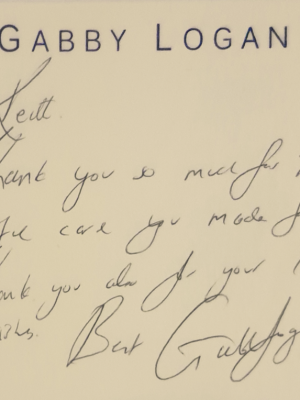 GABBY LOGAN
Keith.
Thank you so much for
the care you made
Thank you also for your
wishes.
Best Gabby